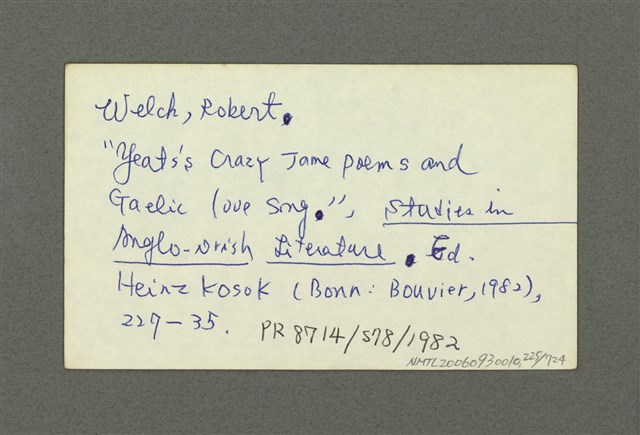 Welch, Robert.
"Yeats's Crazy Jane poems and
Gaelic love Song.", Studies in
Anglo-Irish Literature. Ed.
Heinz Kosok (Bonn: Bouvier, 1982),
227-35. PR 8714/S78/1982
NMTL20060930010,225/724